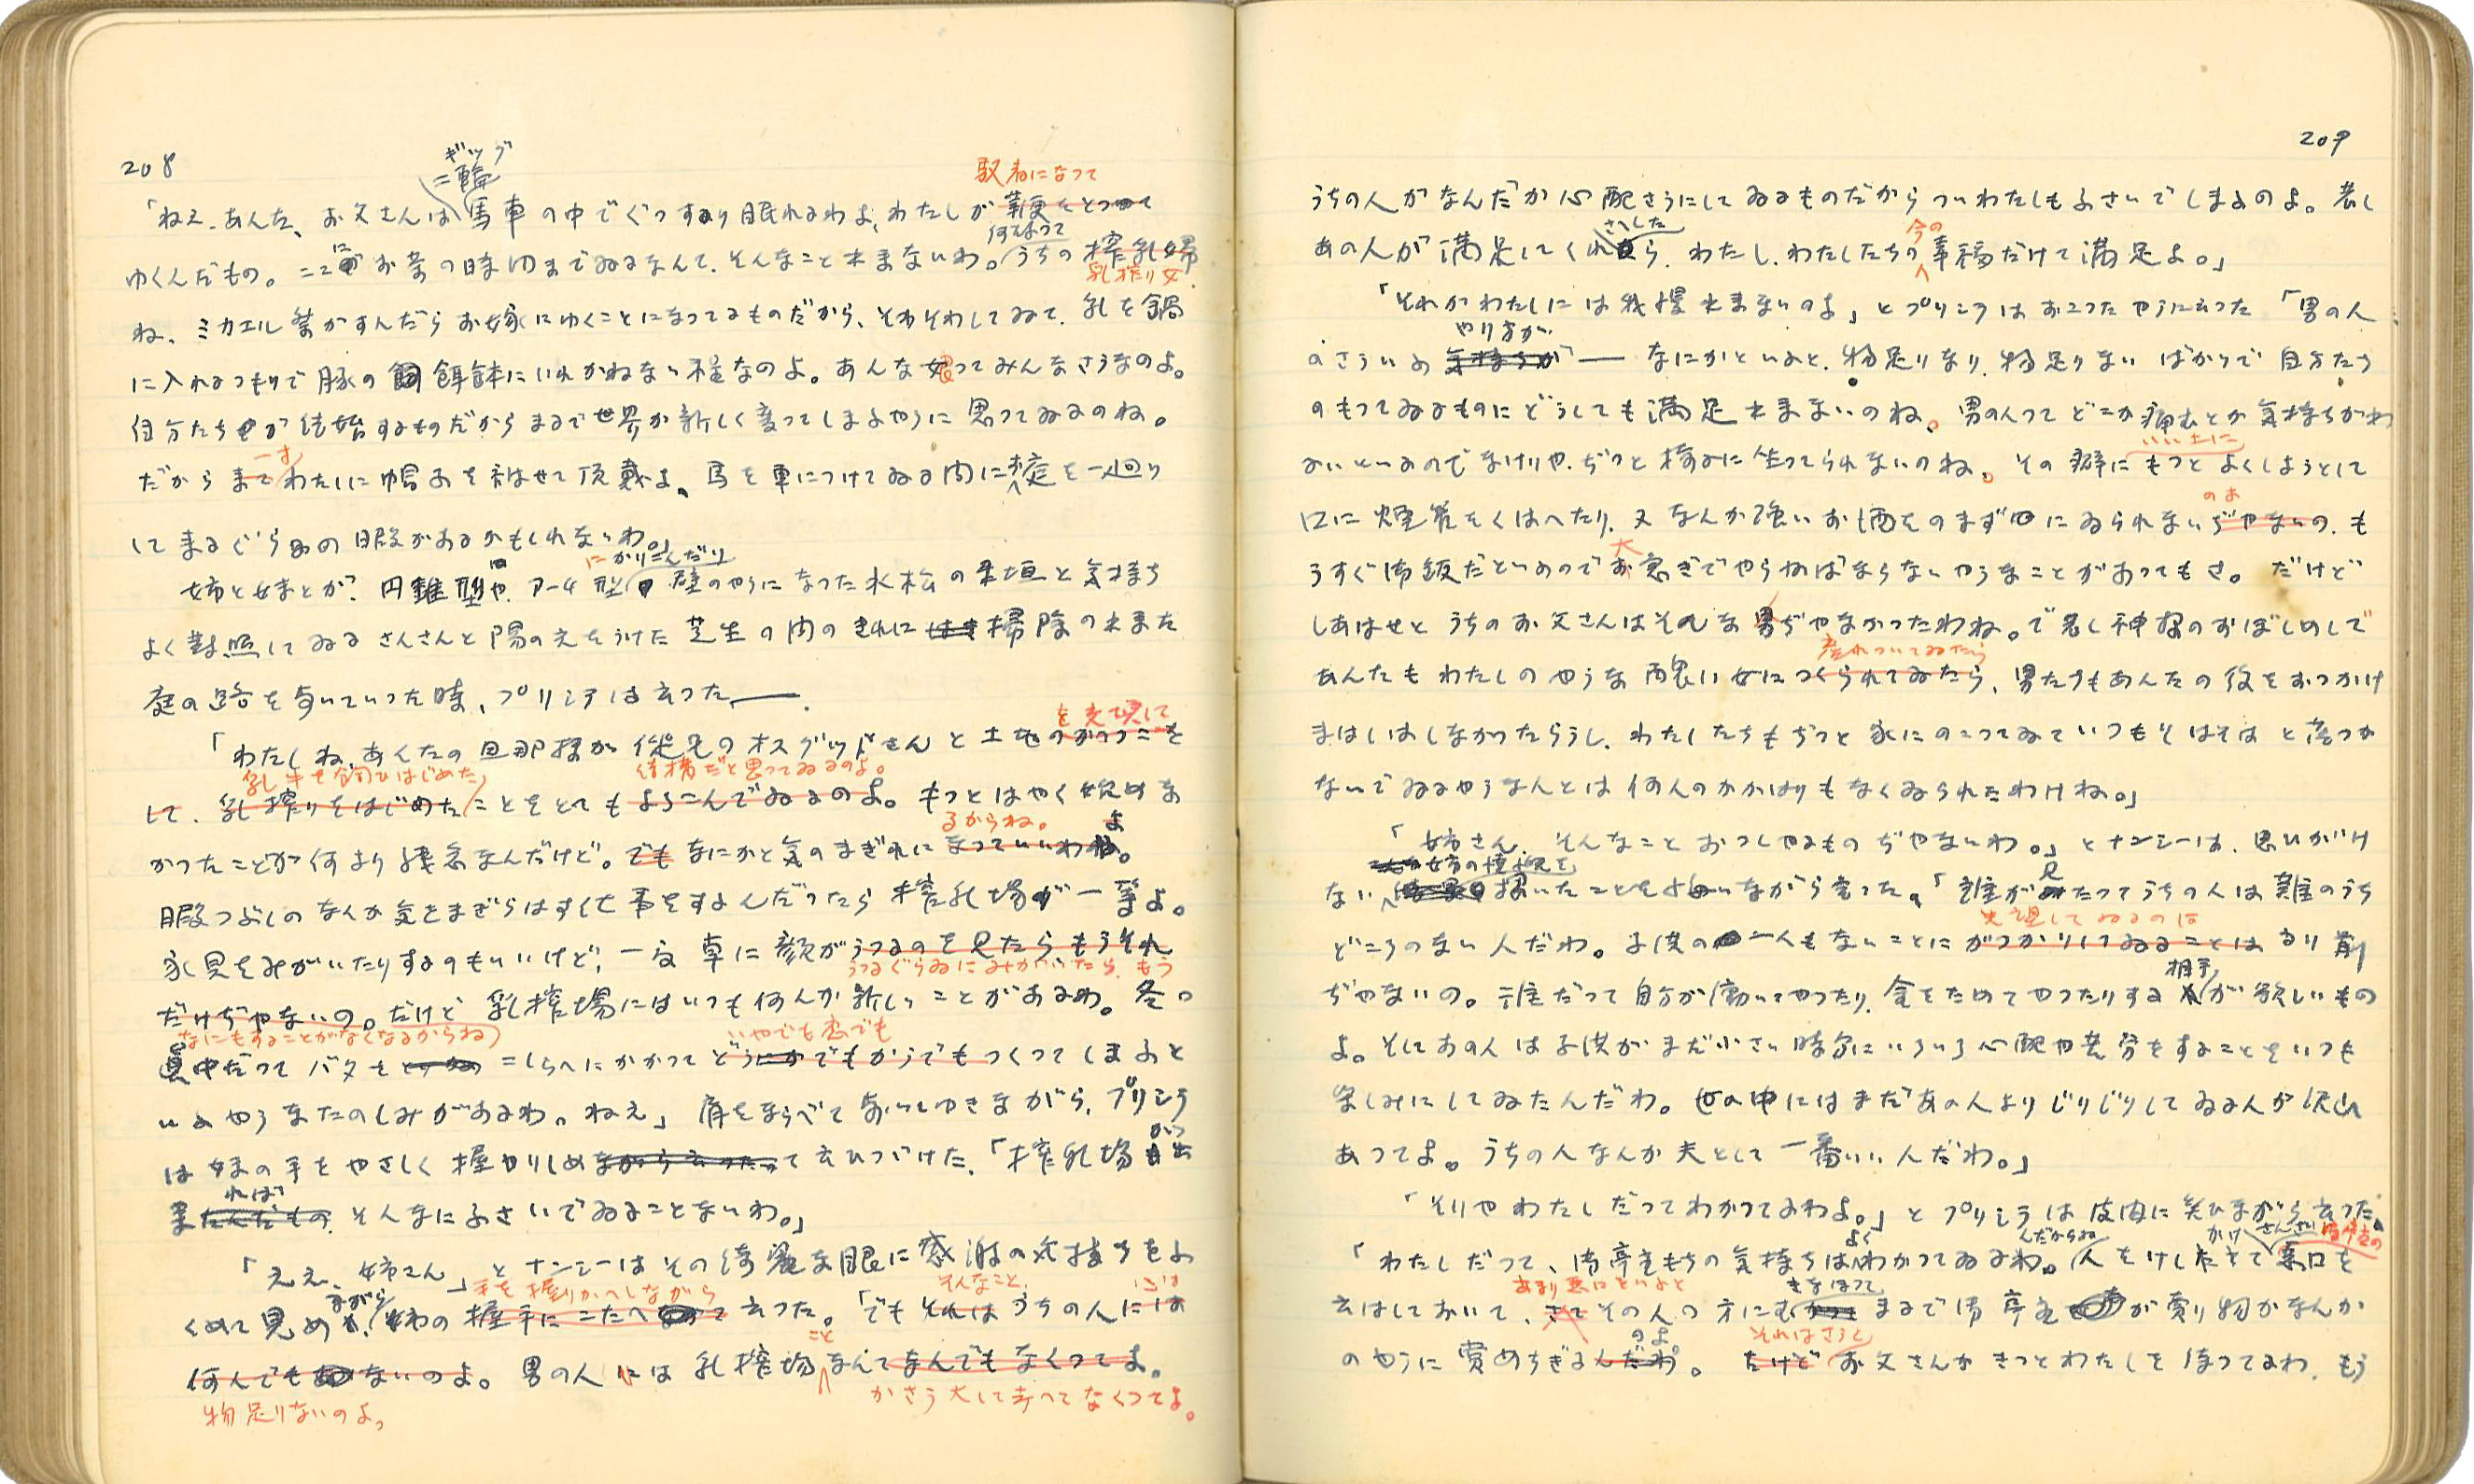 208
ギッグ
二輪
馭者になつて
「ねえ、あんた、お父さんは馬車の中でぐつすり眠れるわよ、わたしが鞭をとつて
何てしようて
ゆくんだもの。ここにお茶の時間までゐるなんて、そんなこと出来ないわ。うちの搾乳婦
乳搾り女
ね、ミカエル祭がすんだらお嫁にゆくことになつてるものだから、そわそわしてゐて、乳を鍋
に入れるつもりで豚の餌鉢にいれかねない程なのよ。あんな娘つてみんなさうなのよ。
自分たちが結婚するものだからまるで世界が新しく変つてしまふやうに思つてゐるのね。
一寸
だからまてわたしに帽子を被せて頂戴よ、馬を車につけてゐる間にお庭を一廻り
してまるぐらゐの暇があるかもしれないわ。」
にかりこんだり
姉と妹とが、円錐型や、アーチ型の壁のやうになつた水松の生垣と気持ち
よく対照してゐるさんさんと陽の光をうけた芝生の間のきれいに掃除の出来た
庭の路を歩いていつた時、プリシラは云つた——.
を交換して
「わたしね、あんたの旦那様が従兄のオスグッドさんと土地のかつこを
乳牛を飼ひはじめた 結構だと思つてゐるのよ。
して、乳搾りをはじめたことをとてもよろこんでゐるのよ。もつとはやく始めな
るからね。 よ
かつたことが何より残念なんだけど。でもなにかと気のまぎれになつていいわね。
暇つぶしのなんか気をまぎらはす仕事をするんだつたら搾乳場が一等よ。
家具をみがいたりするのもいいけど、一度卓に顔がうつるのを見たらもうそれ
うつるぐらゐにみがいたら、もう
だけぢやないの。だけど乳搾場にはいつも何んか新しいことがあるわ。冬の
なにもすることがなくなるからね いやでも応でも
真中だつてバタをこしらへにかかつてどうにかでもかうでもつくつてしまふと
いふやうなたのしみがあるわ。ねえ」肩をならべて歩いてゆきながら、プリシラ
は妹の手をやさしく握りしめながら云つたつて云ひつづけた、「搾乳場が出
れば
来たんだもの そんなにふさいでゐることないわ。」
「ええ、姉さん」とナンシーはその綺麗な眼に感謝の気持ちをふ
ながら 手を握りかへしながら そんなこと、 には
くめて見め、姉の握手にこたへて云つた。「でもそれはうちの人には
こと
何んでもないのよ。男の人には乳搾場なんてなんでもなくつてよ。
物足りないのよ。 かさう大して考へてなくつてよ。
209
うちの人がなんだか心配さうにしてゐるものだからついわたしもふさいでしまふのよ。若し
さへした 今の
あの人が満足してくれたら、わたし、わたしたちの事務だけで満足よ。」
「それがわたしには我慢出来ないのよ」とプリシラはおこつたやうに云つた「男の人
やり方が
のさういふ気持ちが——なにかといふと、物足りなり、物足りないばかりで自分たち
のもつてゐるものにどうしても満足出来ないのね。男の人つてどこか痛むとか気持ちがわ
いい上に
るいといふのでなけりや、ぢつと椅子に坐つてられないのね。その癖にもつとよくしようとして
のよ
口に煙管をくはへたり、又なんか強いお酒をのまずにゐられないぢやないの、も
大
うすぐ御飯だといふのでお急ぎでやらねばならないやうなことがあつてもさ。だけど
しあはせとうちのお父さんはそんな男ぢやなかつたわね。で若し神様のおぼしめしで
産れついてゐたら
あんたもわたしのやうな醜い女につくられてゐたら、男たちもあんたの後をおつかけ
まはしはしなかつたらうし、わたしたちもぢつと家にのこつてゐていつもそはそはと落つか
ないでゐるやうなんとは何んのかかはりもなくゐられたわけね。」
「姉さん、そんなことおつしやるものぢやないわ。」とナンシーは、思いがけ
姉の憤慨を 見
ない 招いたことを悔いながら言つた。「誰がみたつてうちの人は難のうち
失望してゐるのは
どころのない人だわ。子供の一人もないことにがつかりしてゐることはあり前
相手
ぢやないの。誰だつて自分が働いてやつたり、金をためてやつたりする人が欲しいもの
よ。そしてあの人は子供がまだ小さい時分にいろいろ心配や苦労をすることをいつも
楽しみにしてゐたんだわ。世の中にはまだあの人よりじりじりしてゐる人が沢山
あつてよ。うちの人なんか夫として一番いい人だわ。」
「そりやわたしだつてわかつてるわよ。」とプリシラは皮肉に笑ひながら云つた。
よく んだからね かけ さんざい
「わたしだつて、御亭主もちの気持ちはわかつてゐるわ。人をけしたとて悪口を
あまり悪口をいふと きをはつて
云はしておいて、さてその人の方にむかつてまるで御亭主が売り物かなんか
のよ それはさうと
のやうに賞めちぎるんだわ。だけどお父さんがきつとわたしを待つてるわ、もう